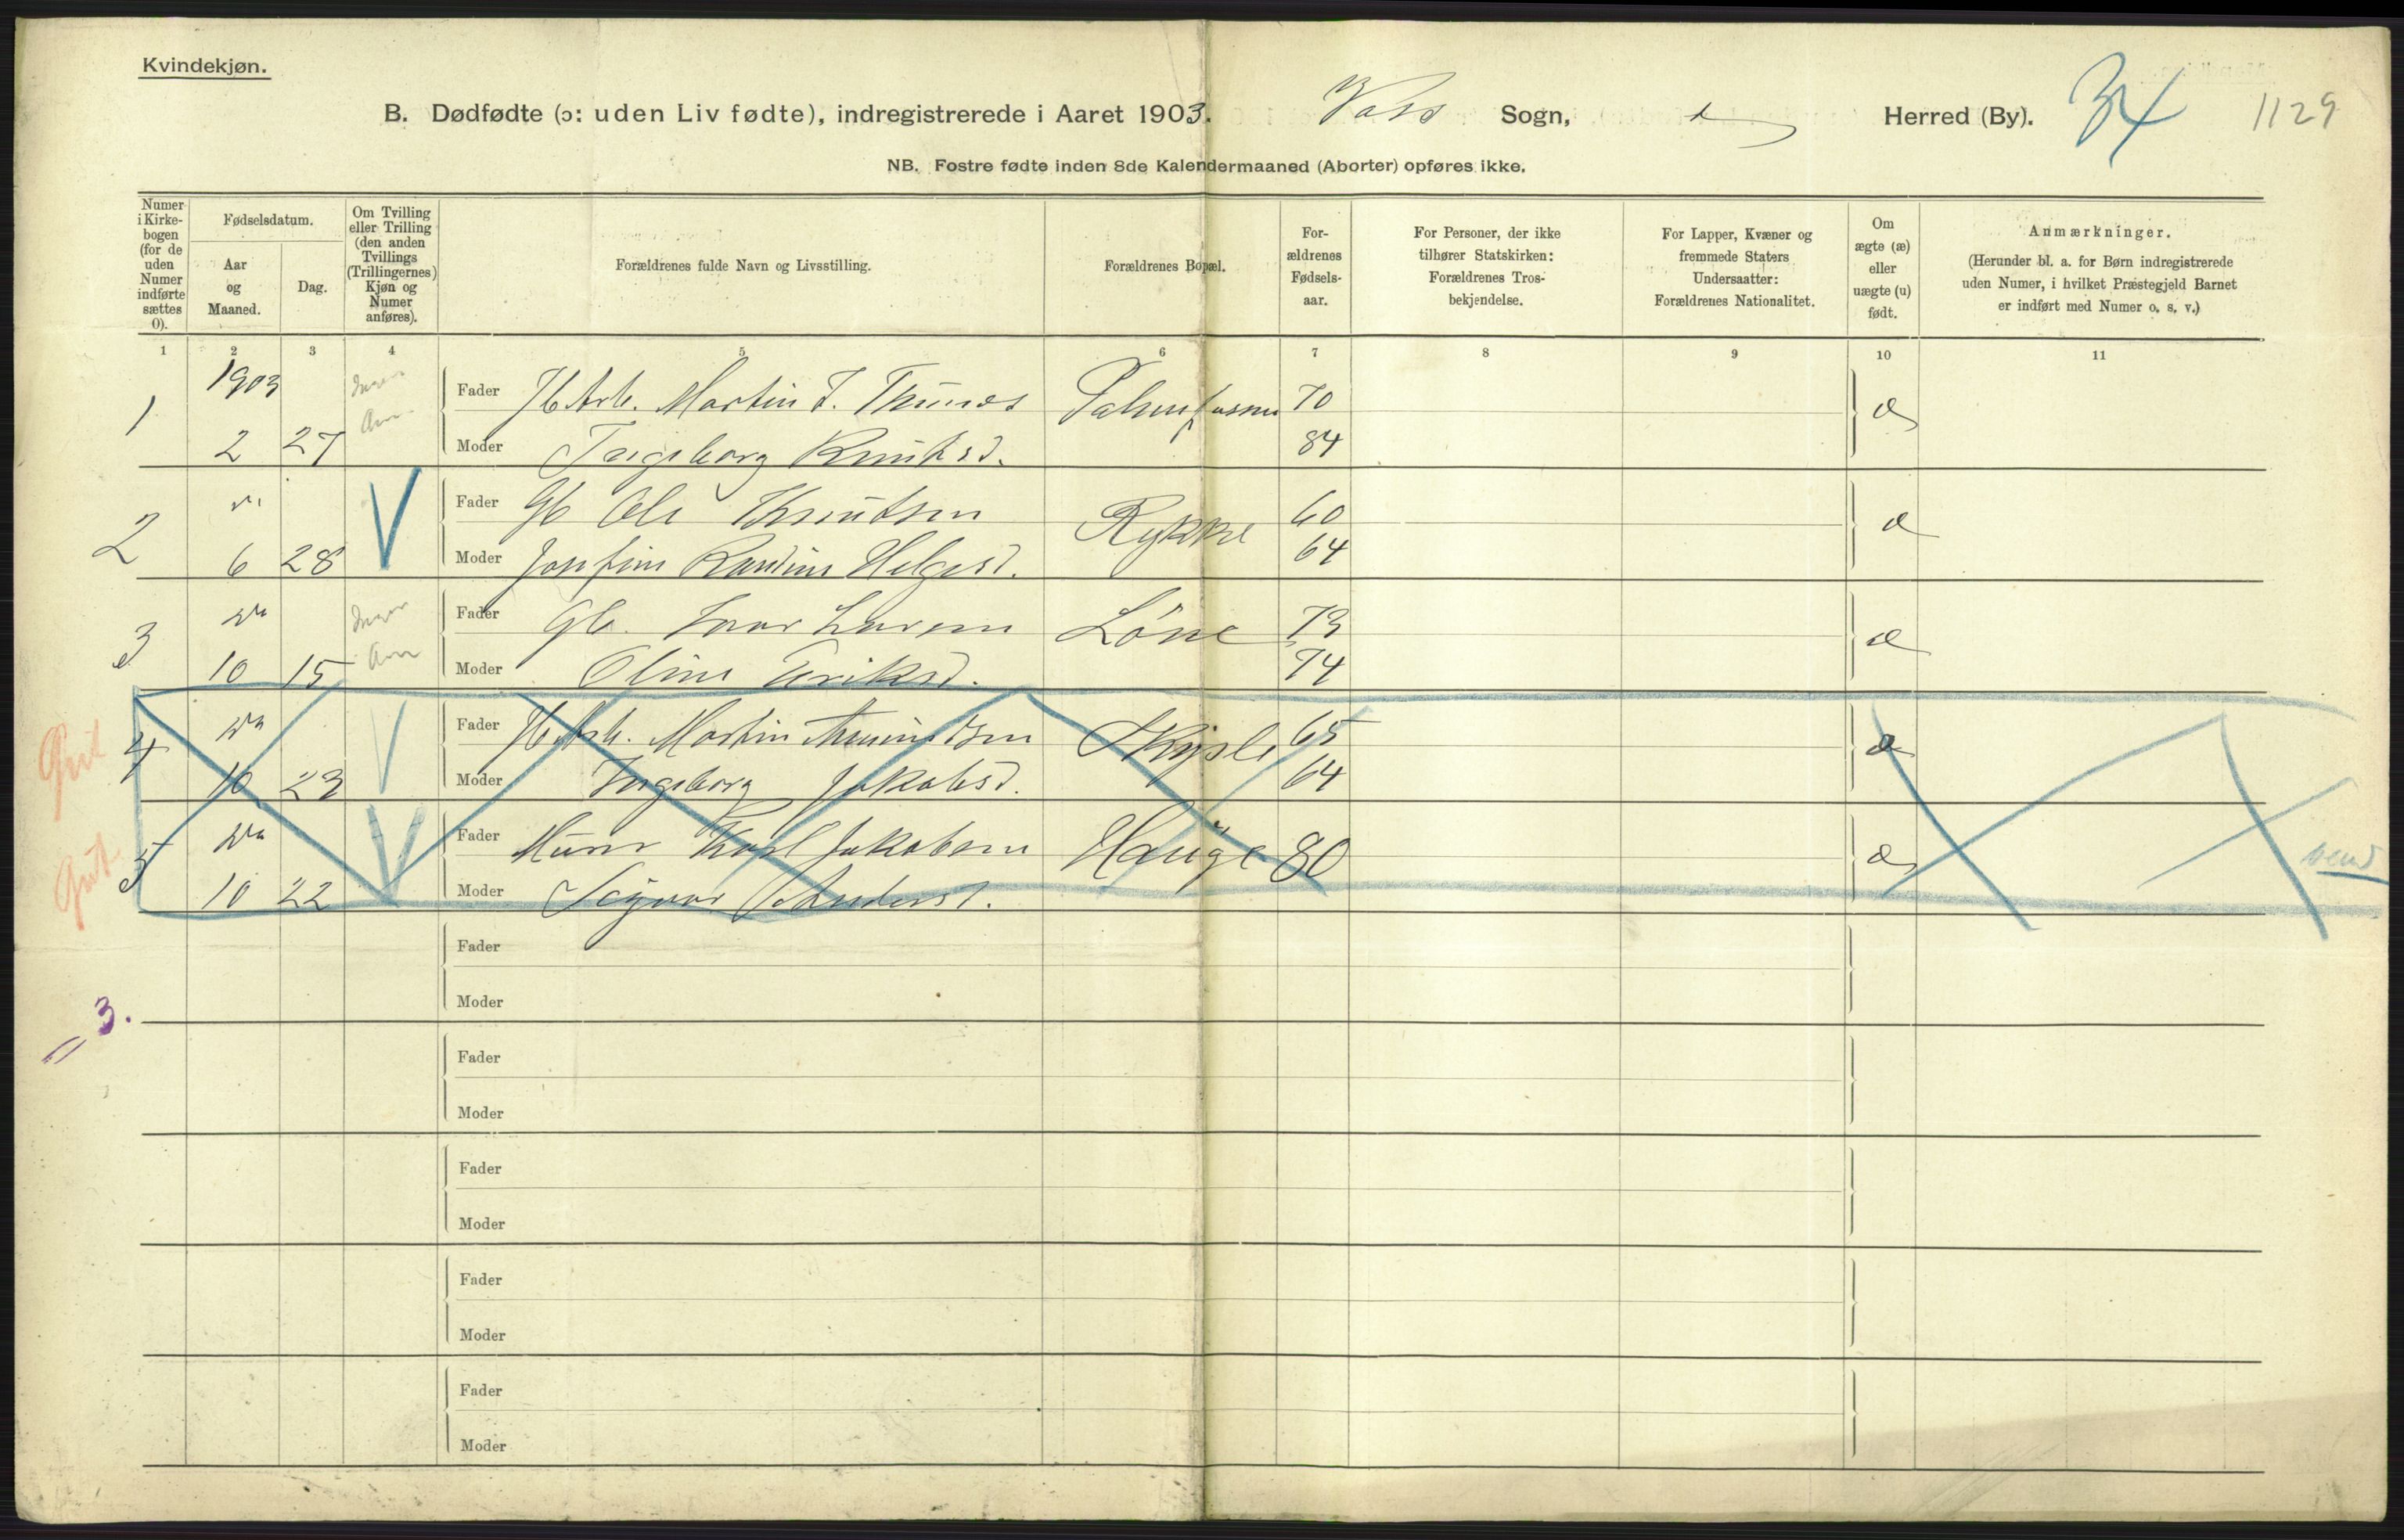 Kvindekjøn.
B. Dødfødte (ɔ: uden Liv fødte), indregistrerede i Aaret 1903. Voss Sogn, Herred (By). 34 1129
NB. Fostre fødte inden 8de Kalendermaaned (Aborter) opføres ikke.
Numer i Kirkebogen (for de uden Numer indførte sættes 0).
Fødselsdatum.
Aar og Maaned.
Dag.
Om Tvilling eller Trilling (den anden Tvillings (Trillingernes) Kjøn og Numer anføres).
Forældrenes fulde Navn og Livsstilling.
Forældrenes Bopæl.
Forældrenes Fødselsaar.
For Personer, der ikke tilhører Statskirken: Forældrenes Trosbekjendelse.
For Lapper, Kvæner og fremmede Staters Undersaatter: Forældrenes Nationalitet.
Om ægte (æ) eller uægte (u) født.
Anmærkninger.
(Herunder bl. a. for Børn indregistrerede uden Numer, i hvilket Præstegjeld Barnet er indført med Numer o. s. v.)
1 2 3 4 5 6 7 8 9 10 11
1 1903 Fader Martin T. 70 æ
2 27 Moder Ingeborg Knutsd. 84
2 Fader Gb Ole Knutsen Rykke 60 æ
6 28 Moder Josefine Helgesd. 64
3 Fader Gb. Larsen Löne 73 æ
10 15 Moder Oline Eriksd. 74
Gut 4 Fader Martin Skjple 65 æ
10 23 Moder Ingeborg Jakobsd. 64
Gut 5 Fader Murer Karl Jakobsen Hauge 80 æ
10 22 Moder Andersd.
Fader
Moder
= 3.
Fader
Moder
Fader
Moder
Fader
Moder
Fader
Moder